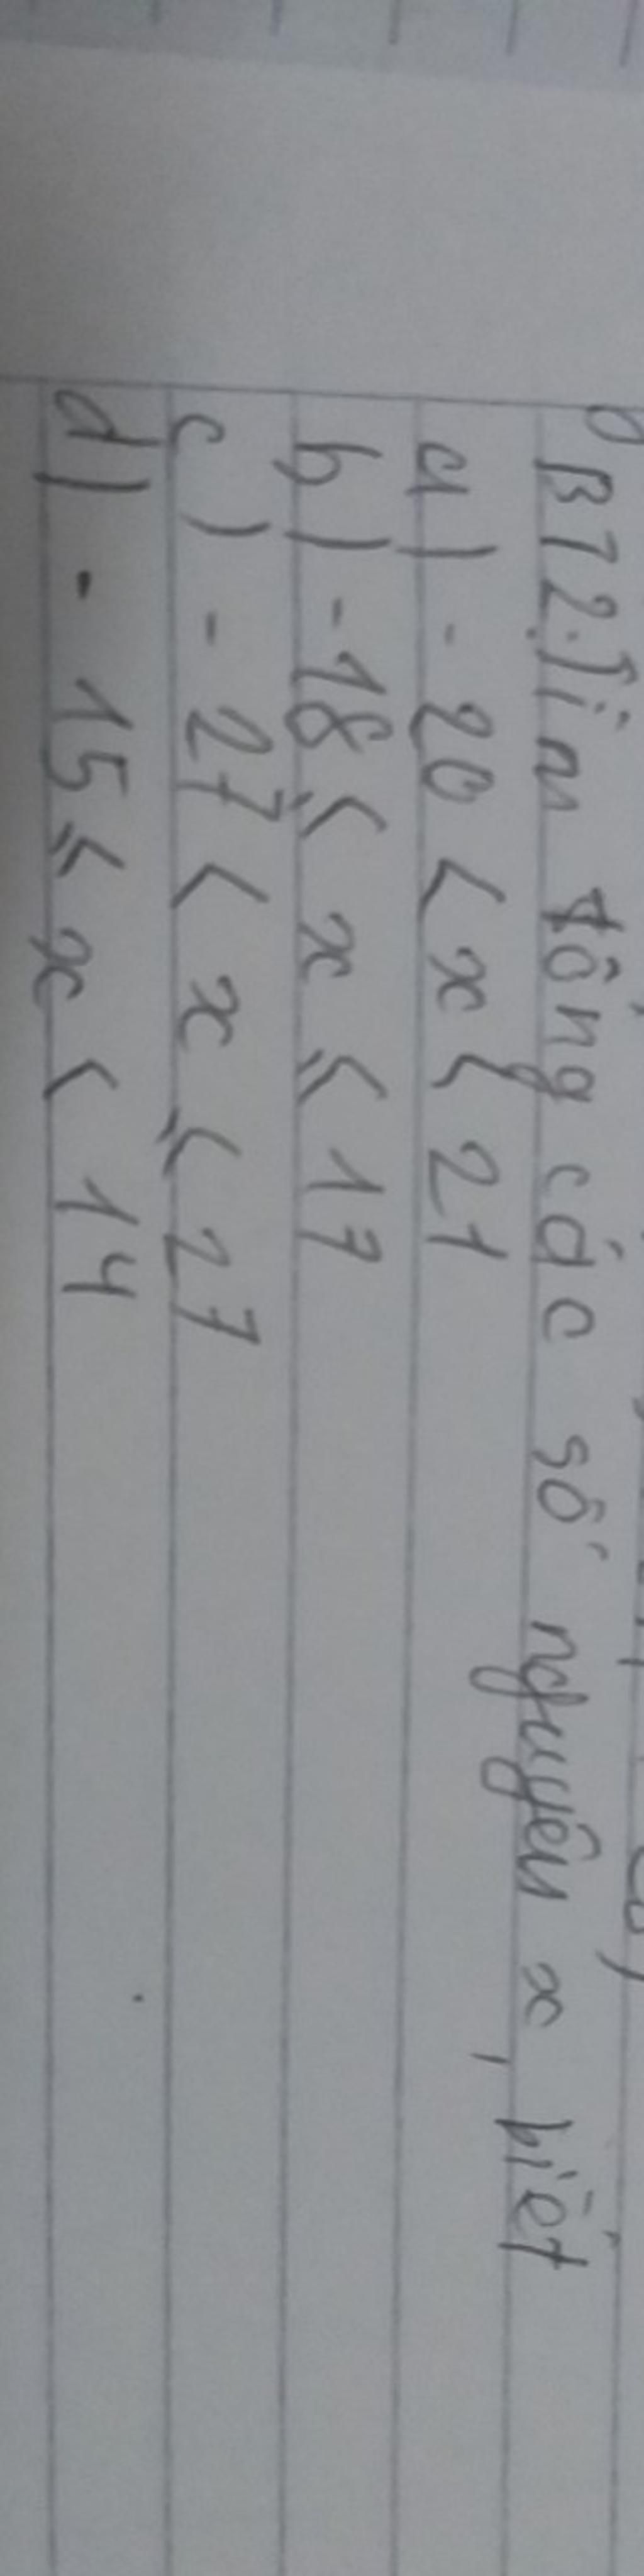 BT2. Tìm tổng các số nguyên x, biết
a) - 20 < x < 21
b) - 18 ≤ x ≤ 17
c) - 27 < x ≤ 27
d) - 15 ≤ x < 14